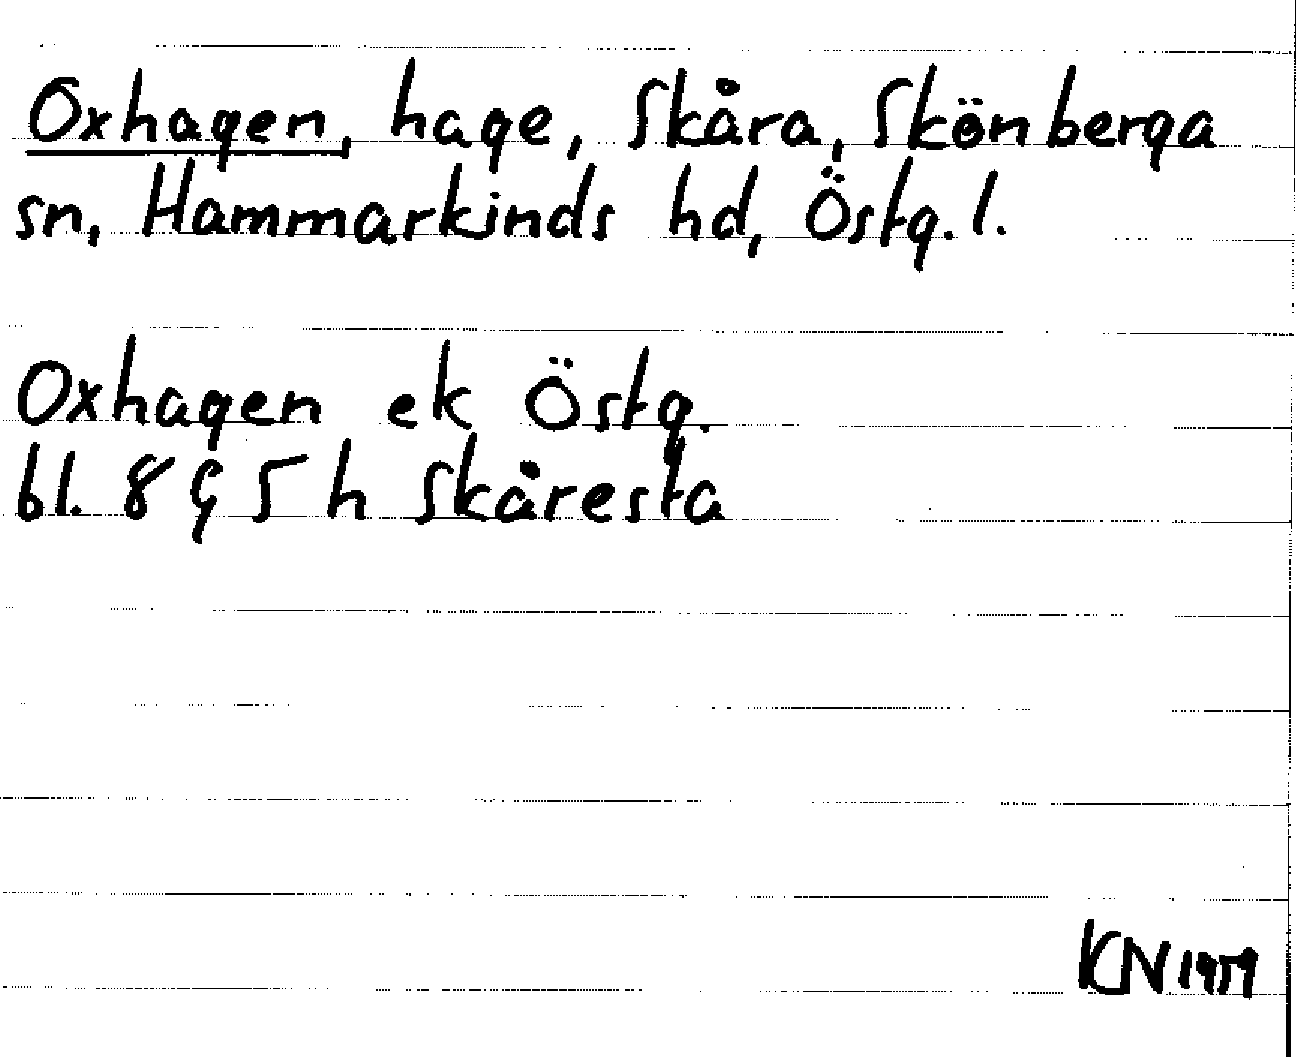 Oxhagen, hage, Skåra, Skönberga
sn, Hammarkinds hd, Östg. l.
Oxhagen ek Östg.
bl. 8 G 5 h Skåresta
KN 1959